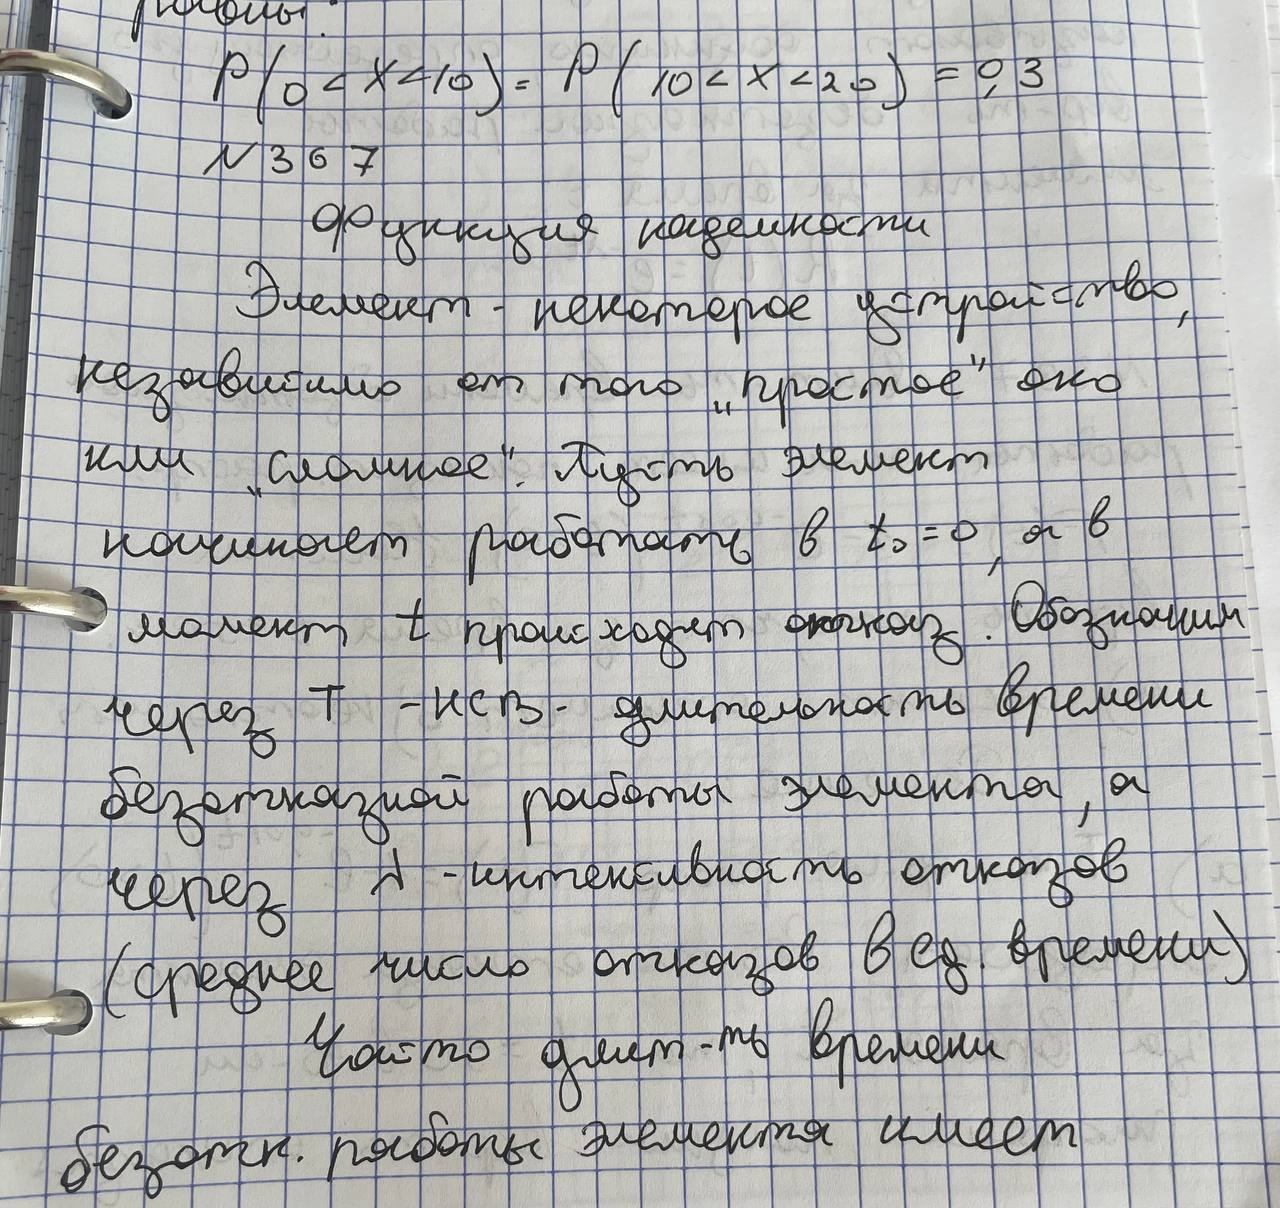 равны:
P(0 < X < 10) = P(10 < X < 20) = 0,3
N 367
Функция надежности
Элемент - некоторое устройство,
независимо от того „простое“ оно
или „сложное“. Пусть элемент
начинает работать в t₀ = 0, а в
момент t происходит отказ. Обозначим
через T - НСВ - длительность времени
безотказной работы элемента, а
через λ - интенсивность отказов
(среднее число отказов в ед. времени)
Часто длит-ть времени
безотк. работы элемента имеет